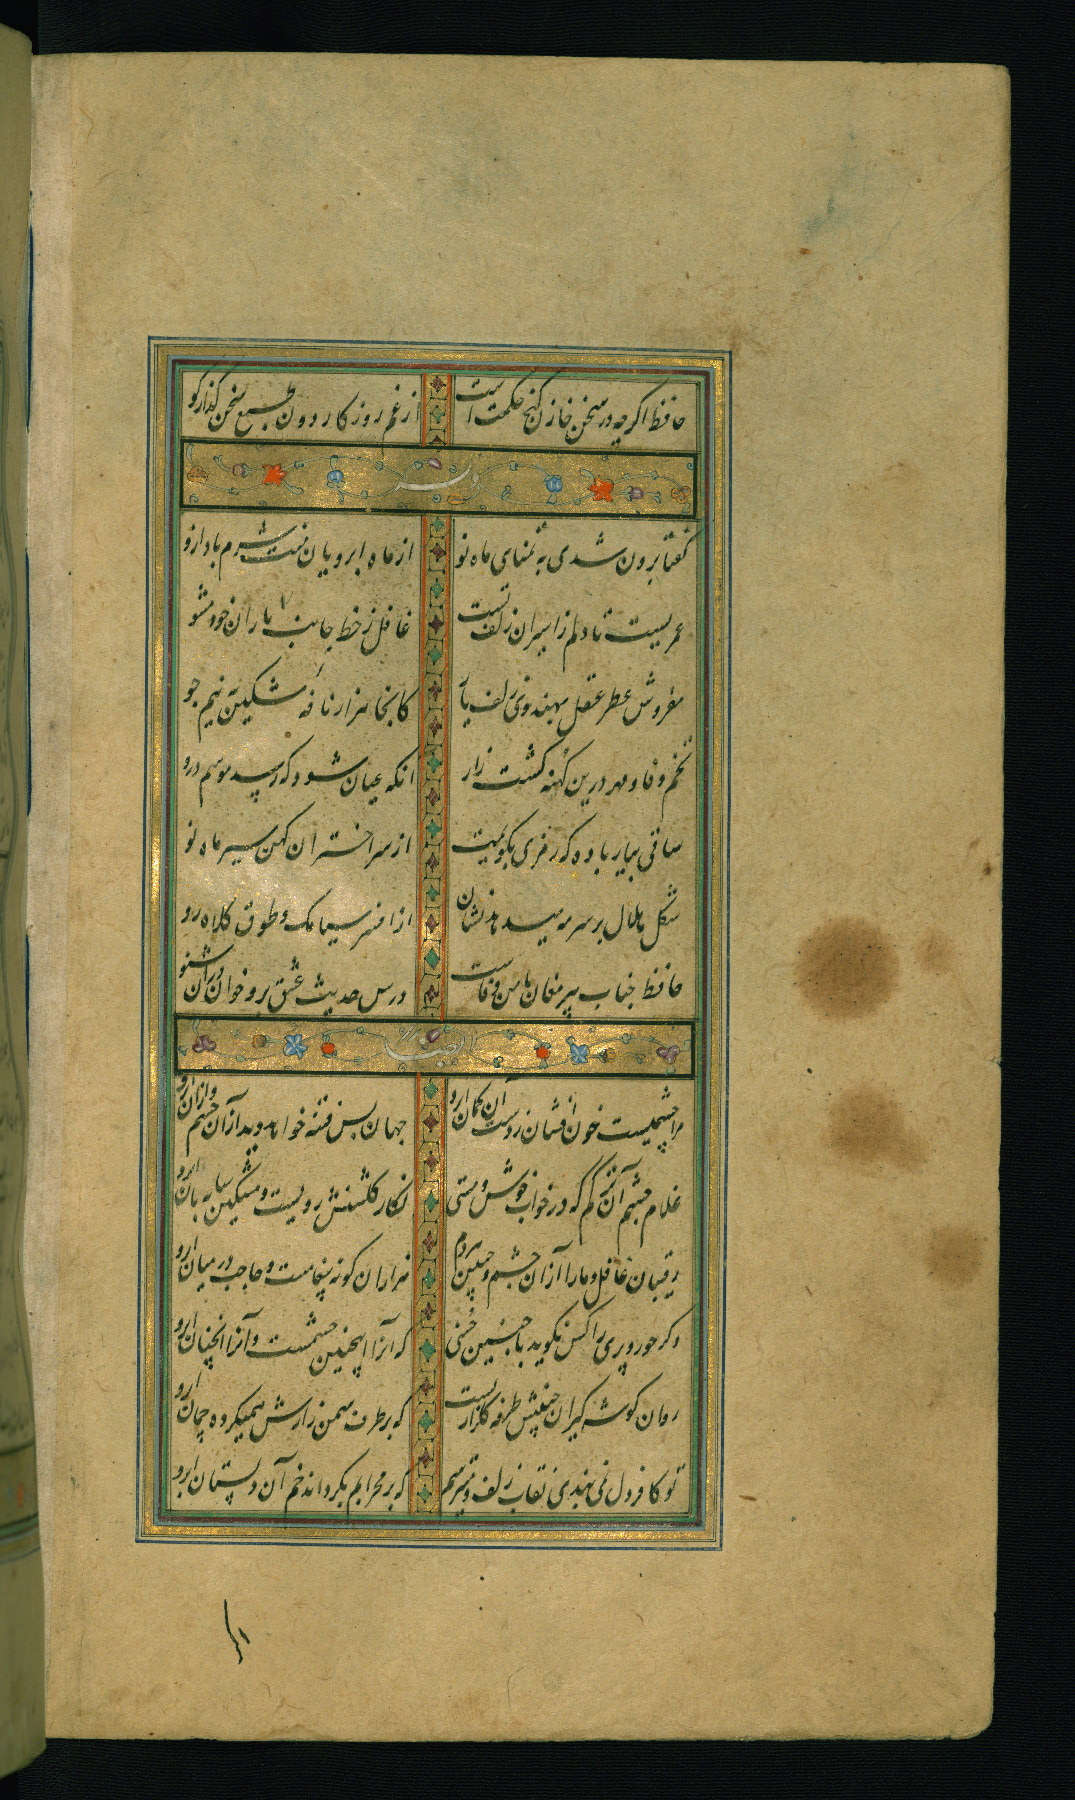 حافظ اگرچه در سخن خازن گنج حکمت است از غم روزگار دون طبع سخن گذار کو
وله
گفتا برون شدی به تماشای ماه نو از ماه ابرویان منت شرم باد رو
عمریست تا دلم ز اسیران زلف تست غافل ز حفظ جانب یاران خود مشو
مفروش عطر عقل بهندوی زلف یار کانجا هزار نافه مشکین به نیم جو
تخم وفا و مهر درین کهنه کشت زار انکه عیان شود که رسد موسم درو
ساقی بیار باده که رمزی بگویمت از سر اختران کهن سیر ماه نو
شکل هلال بر سر مه میدهد نشان از افسر سیامک و طوق کلاه زو
حافظ جناب پیر مغان مامن وفاست درس حدیث عشق برو خوان و زان شنو
مرا چشمیست خون افشان ز دست آن کمان ابرو جهان بس فتنه خواهد دید از آن چشم و از آن ابرو
غلام چشم آن ترکم که در خواب خوش مستی نگارین گلشنش رویست و مشکین سایه بان ابرو
رقیبان غافل و ما را از آن چشم و جبین هر دم هزاران گونه پیغامست و حاجب در میان ابرو
دگر حور و پری را کس نگوید با چنین حسنی که آنرا اینچنین چشمست و آنرا آنچنان ابرو
روان گوشه گیران را جبینش طرفه گلزاریست که بر طرف سمن زارش همیگردد چمان ابرو
تو کافر دل نمی بندی نقاب زلف و میترسم که محرابم بگرداند خم آن دلستان ابرو